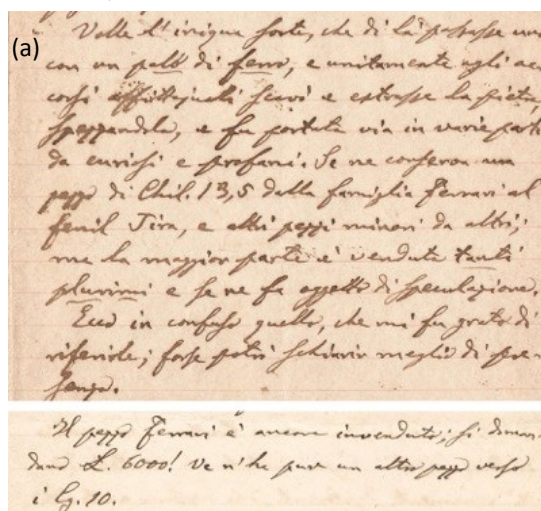 (a)
Volle l'iniqua sorte, che di là passasse uno
con un palo di ferro, e unitamente agli ac
corsi affittajuoli scavò e estrasse la pietra,
spezzandola, e fu portata via in varie parti
da curiosi e profani. Se ne conserva un
pezzo di Chil. 13,5 dalla famiglia Ferrari al
fenil Tira, e altri pezzi minori da altri;
ma la maggior parte è venduta tanti
plurimi e se ne fa oggetto di speculazione.
Ecco in confuso quello, che mi fu grato di
riferirle; forse potrò schiarir meglio di pre-
senza.
Il pezzo Ferrari è ancora invenduto; si doman-
dano L. 6000! Ve n'ha pure un altro pezzo verso
i Cg. 10.